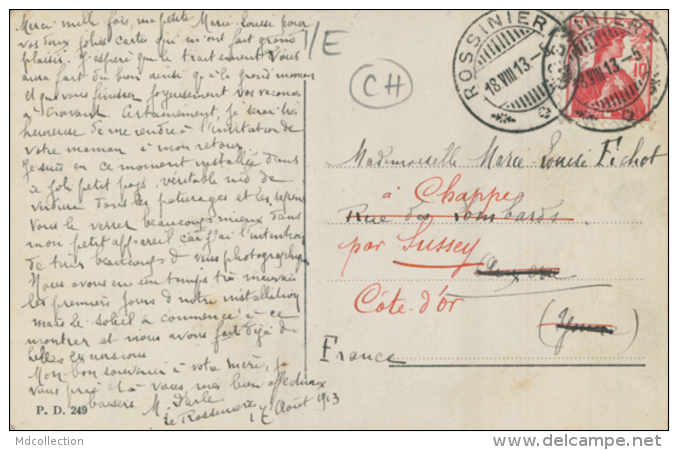 Merci mille fois, ma petite Marie-Louise pour
vos deux jolies cartes qui m'ont fait grand
plaisir. J'espère que le traitement vous
aura fait du bon ainsi qu'à la grand maman
et que vous finissez joyeusement vos vacances
à Cravant. Certainement, je serai très
heureuse de me rendre à l'invitation de
votre maman à mon retour.
Je suis en ce moment installée dans
ce joli petit pays, véritable nid de
verdure dans les pâturages et les
Vous le verrez beaucoup mieux dans
mon petit appareil car j'ai l'intention
de tirer beaucoup de vues photographiques
Nous avons eu un temps très mauvais
les premiers jours de notre installation
mais le soleil à commencé à se
montrer et nous avons fait déjà de
belles excursions.
Mon bon souvenir à votre mère, je
vous prie et à vous mes bien affectueux
baisers. M.
Rossinière, 17 Août 1913
P. D. 249
I/E
CH
ROSSINIÈRE
18.VIII.13.-5
ROSSINIÈRE
18.VIII.13.-5
10
Mademoiselle Marie Louise Fichot
à Chappe
Rue des Lombards
par Sussey
Côte-d'Or
(Yonne)
France
Mdcollection
www.delcampe.net